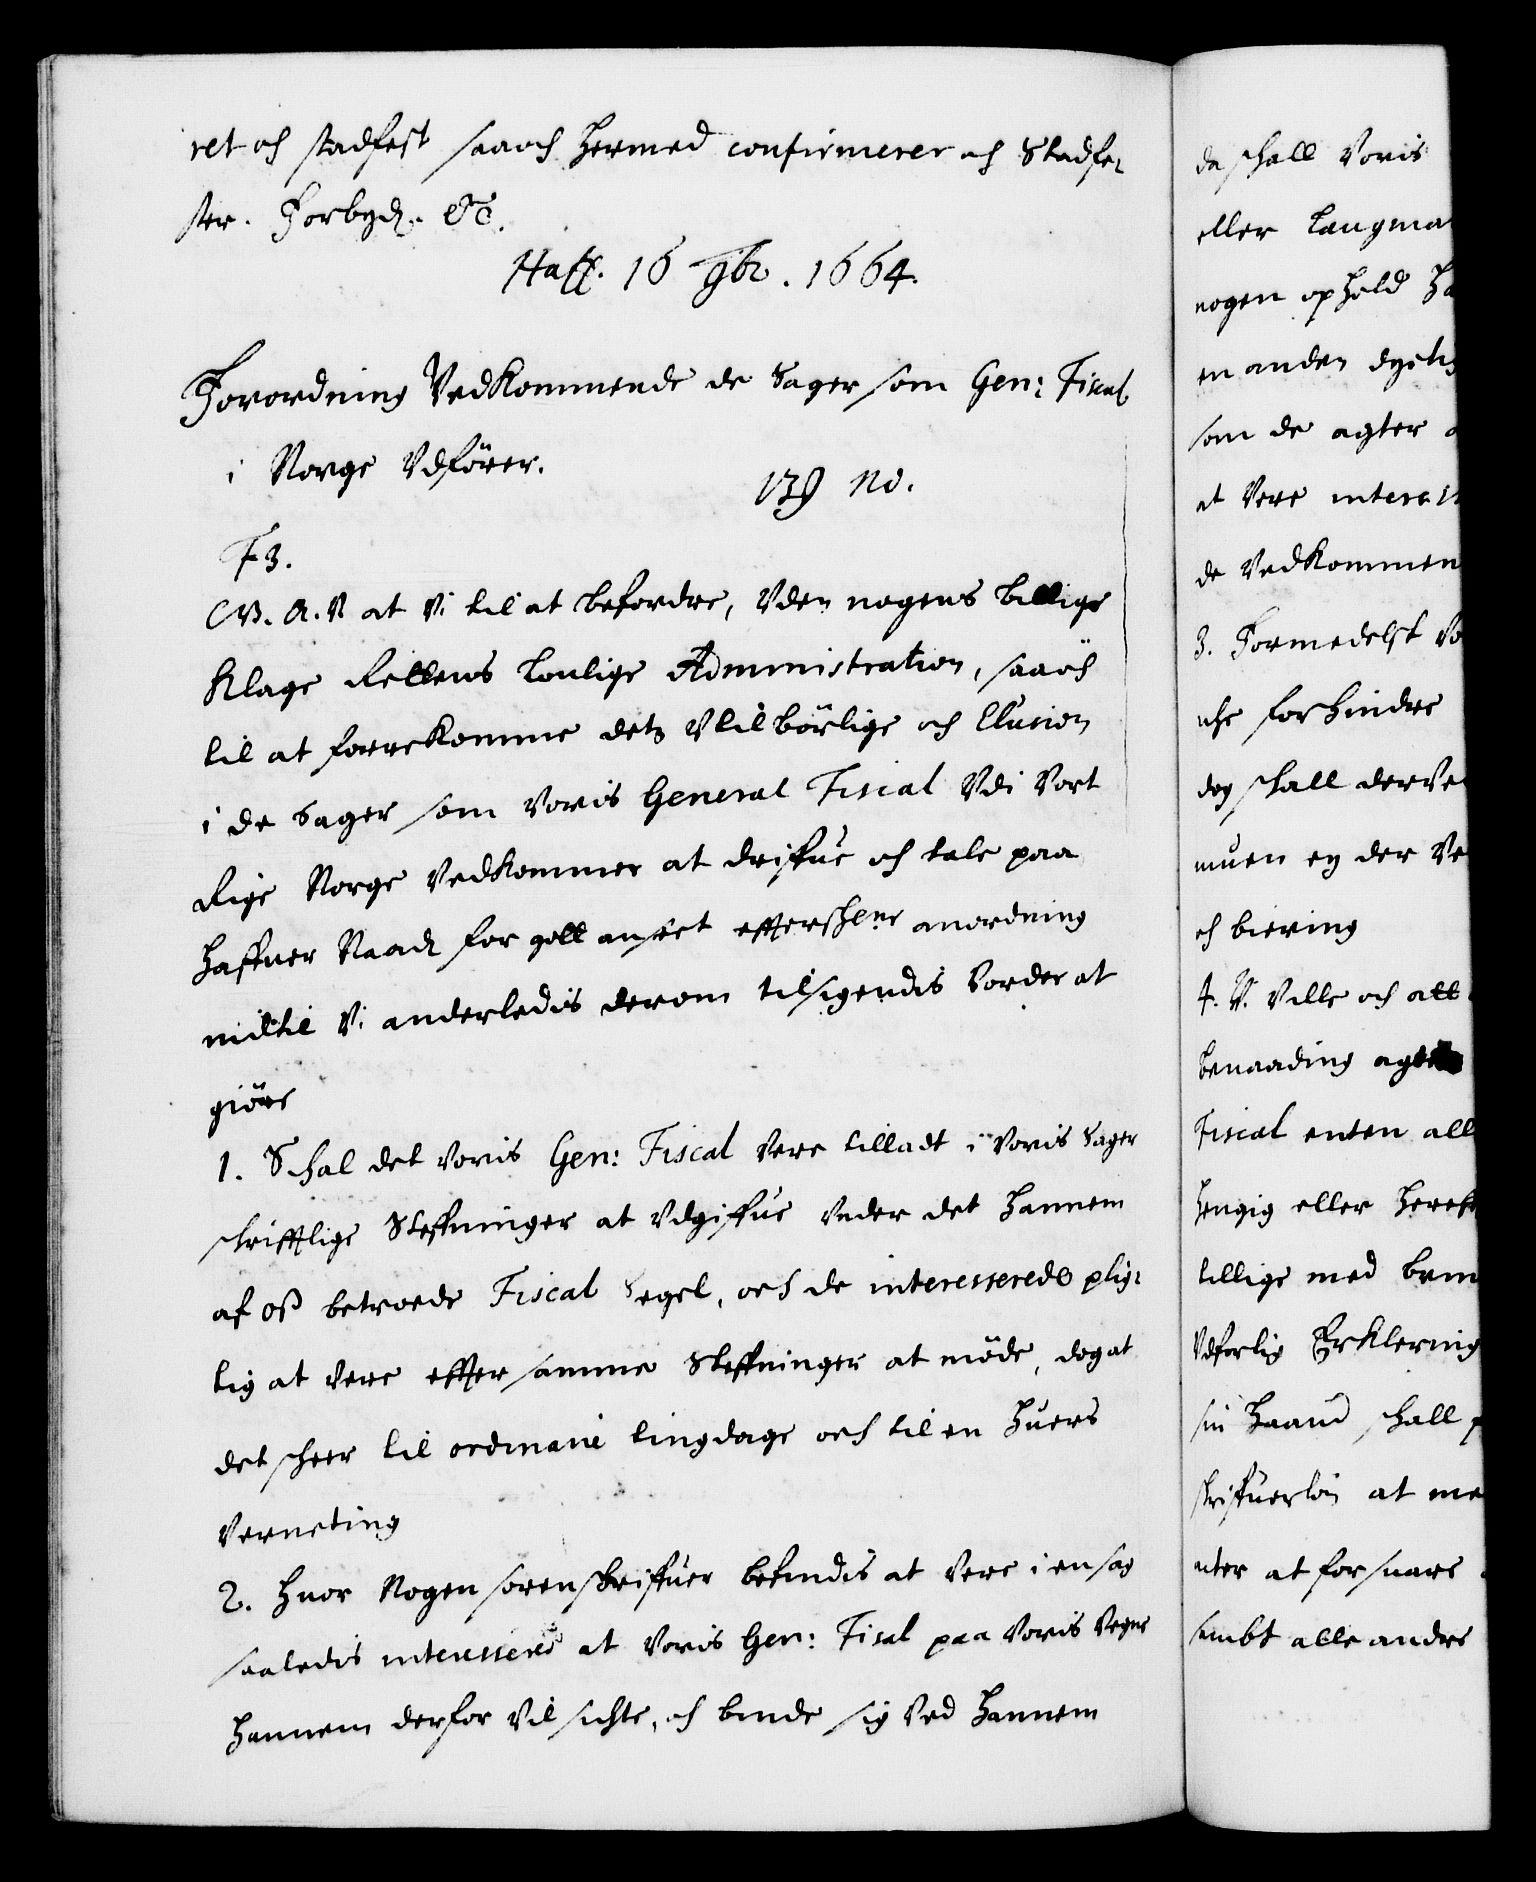 ret och stadfest saaoch hermed confirmerer och Stadfe
ster. Forbyd. &c.
Haff. 16 9br. 1664.
Forordning Vedkommende de Sager som Gen: Fiscal
i Norge Udfører.
139 No.
F 3.
G. A. V at Vi til at befordre, Uden nogens billige
Klage Rettens lovlige Administration, saaoch
til at forrekomme dets Utilbörlige och Elusion
i de Sager som Voris General Fiscal Udi Vort
Rige Norge Vedkommer at drifue och tale paa
haffuer Naad. for got anseet effterskrne anordning
indtil Vi anderledis derom tilsigendis Vorder at
giöre
1. Schal det voris Gen: Fiscal vere tilladt i Voris Sager
schrifftlige Steffninger at Udgiffue under det hannem
af oß betroede Fiscal Segel, och de interesserede plig-
tig at vere effter samme Steffninger at möde, dog at
det scheer til ordinarie tingdage och til en huers
Verneting
2. Huor Nogen sorenskriffuer befindis at vere i en sag
saaledis interessered at Voris Gen: Fiscal paa Voris Vegne
hannem derfor Vil sichte, och binde sig Ved hannem
da schall Voris
eller Laugma
nogen ophold ha
en anden dyctig
som de agter
at Vere interess
de Vedkommen
3. Formedelst Vo
iche forhindre
dog schall derVe
muen ey der Ve
och biering
4. V. Ville och att
benaading agt
Fiscal enten all
hengig eller heref
tillige med bem
Udførlig Erklering
sin Haand schall
skriffuerløn at me
nter at forsuare
sambt alle andre